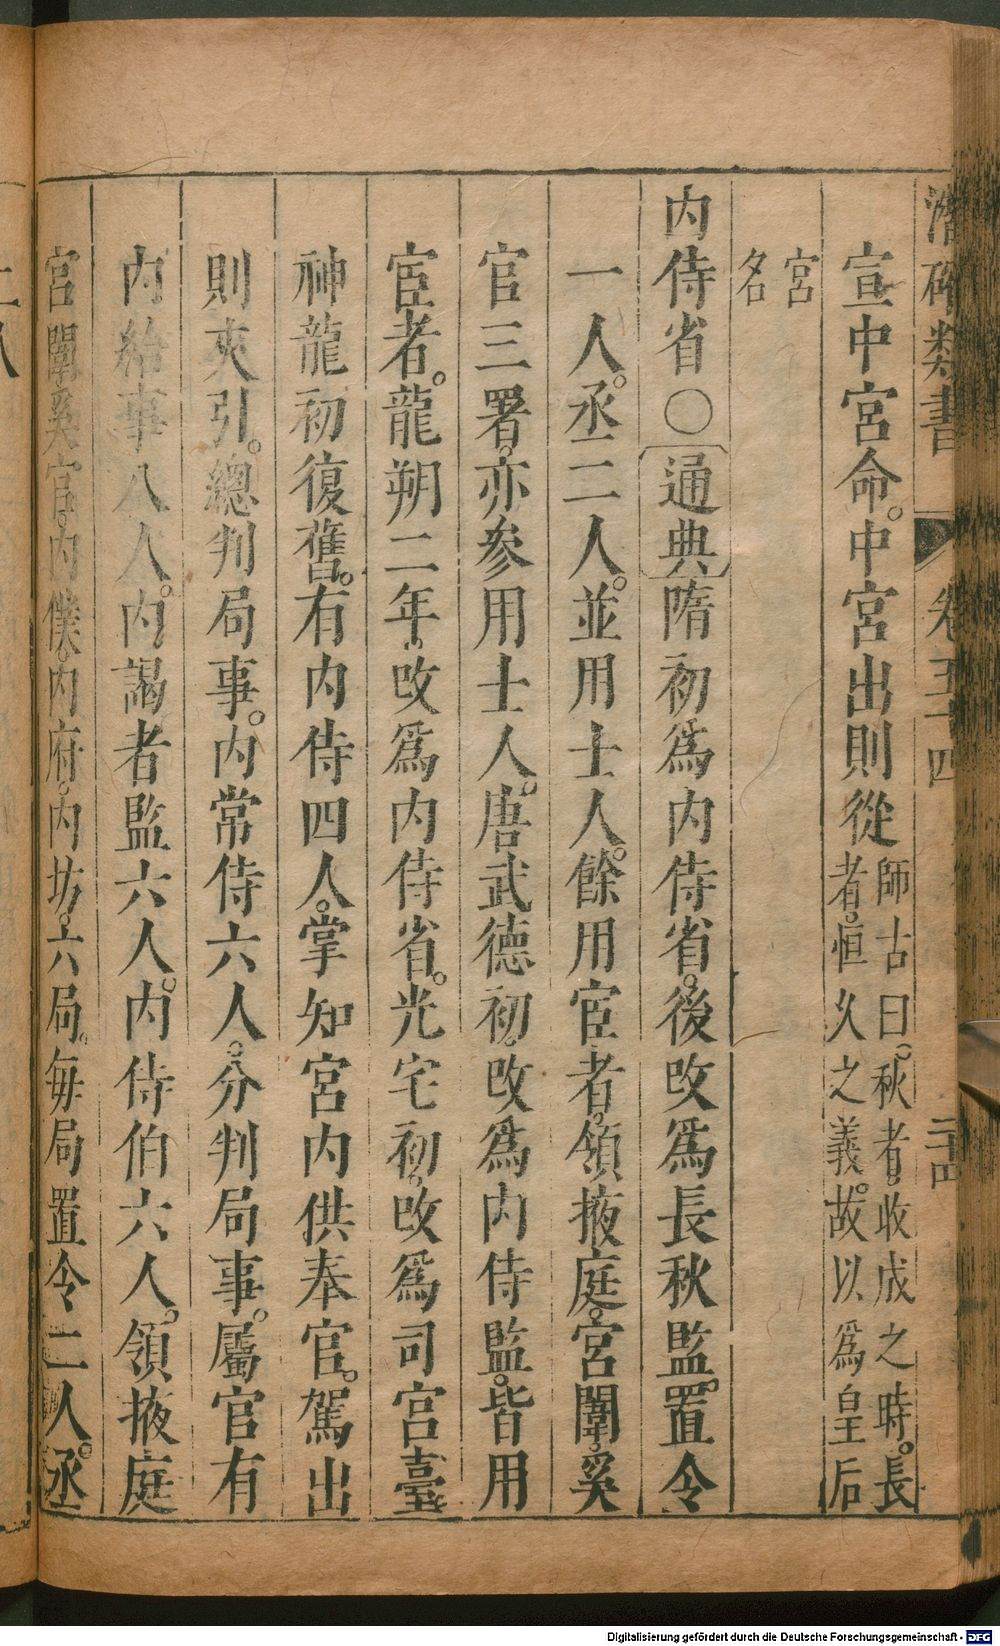 潛確類書 卷五十四 二十四
宣中宮命。中宮出則從師古曰。秋者。收成之時。長者。恒久之義。故以爲皇后
宮名
内侍省○通典隋初爲内侍省。後改爲長秋監。置令
一人。丞二人。並用士人。餘用宦者。領掖庭。宮闈。奚
官三署。亦參用士人。唐武德初。改爲内侍監。皆用
宦者。龍朔二年。改爲内侍省。光宅初。改爲司宮臺
神龍初復舊。有内侍四人。掌知宮内供奉官。駕出
則夾引。總判局事。内常侍六人。分判局事。屬官有
内給事八人。内謁者監六人。内侍伯六人。領掖庭
宮闈奚官。内僕。内府。内坊。六局。每局置令二人。丞
Digitalisierung gefördert durch die Deutsche Forschungsgemeinschaft - DFG